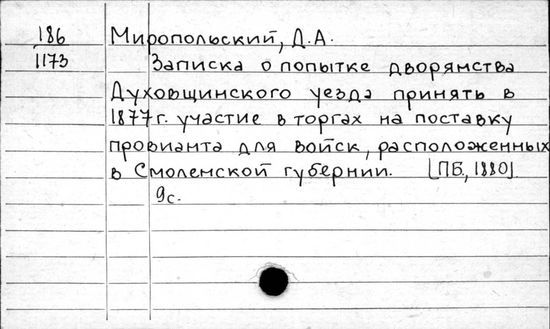 186 Миропольский, Д.А.
1173 Записка о попытке дворянства
Духовщинского уезда принять в
1877 г. участие в торгах на поставку
провианта для войск, расположенных
в Смоленской губернии. [ПБ, 1880]
9с.